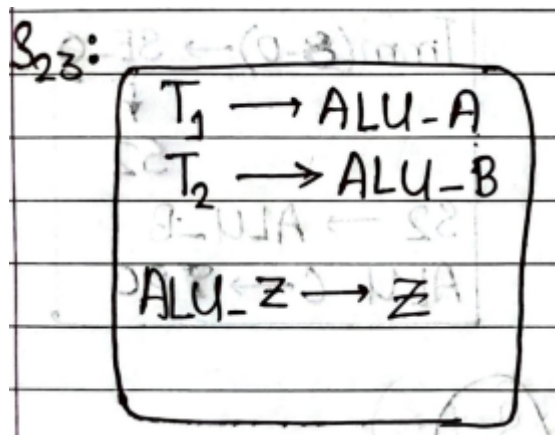 S₂₃:
T₁ → ALU_A
T₂ → ALU_B
ALU_Z → Z